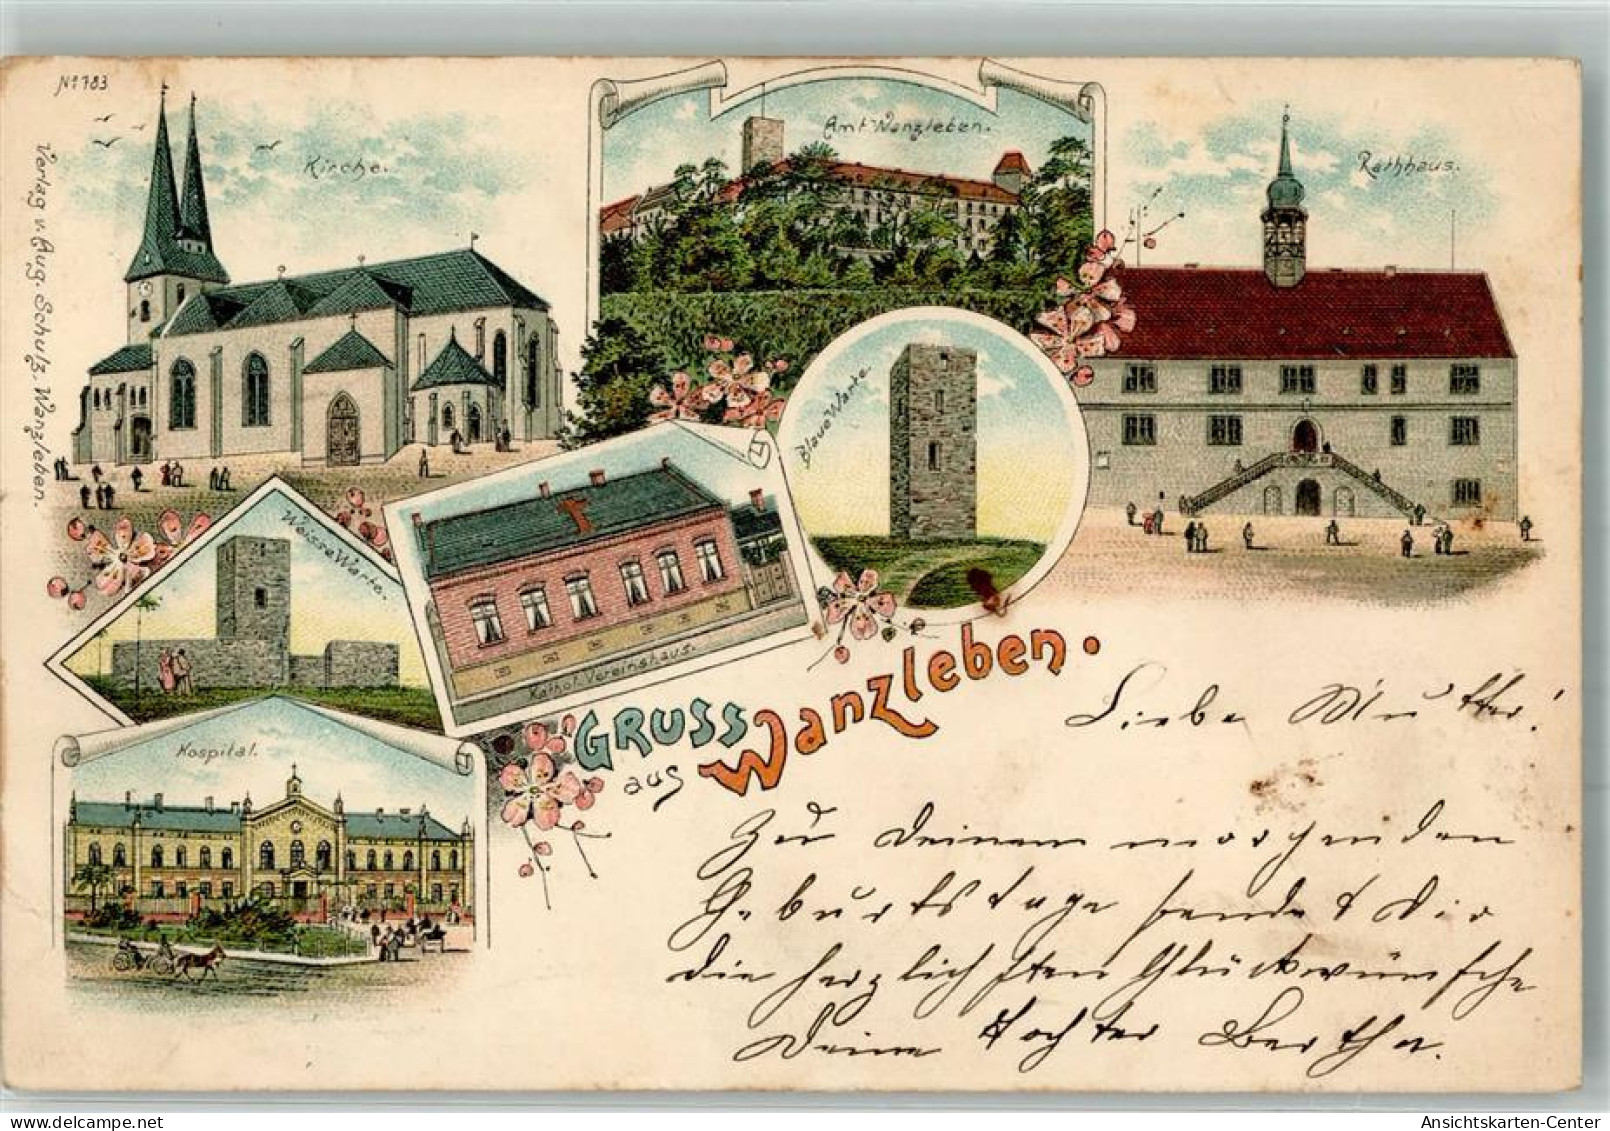 No 783
Verlag v. Aug. Schulz, Wanzleben.
Kirche.
Amt Wanzleben.
Rathhaus.
Blaue Warte
Weisse Warte.
Kathol. Vereinshaus.
Hospital.
GRUSS
aus Wanzleben.
Liebe Mutter!
Zu Deinem morgenden
Geburtstage sendet Dir
die herzlichsten Glückwünsche
Deine Tochter Bertha.
Ansichtskarten-Center